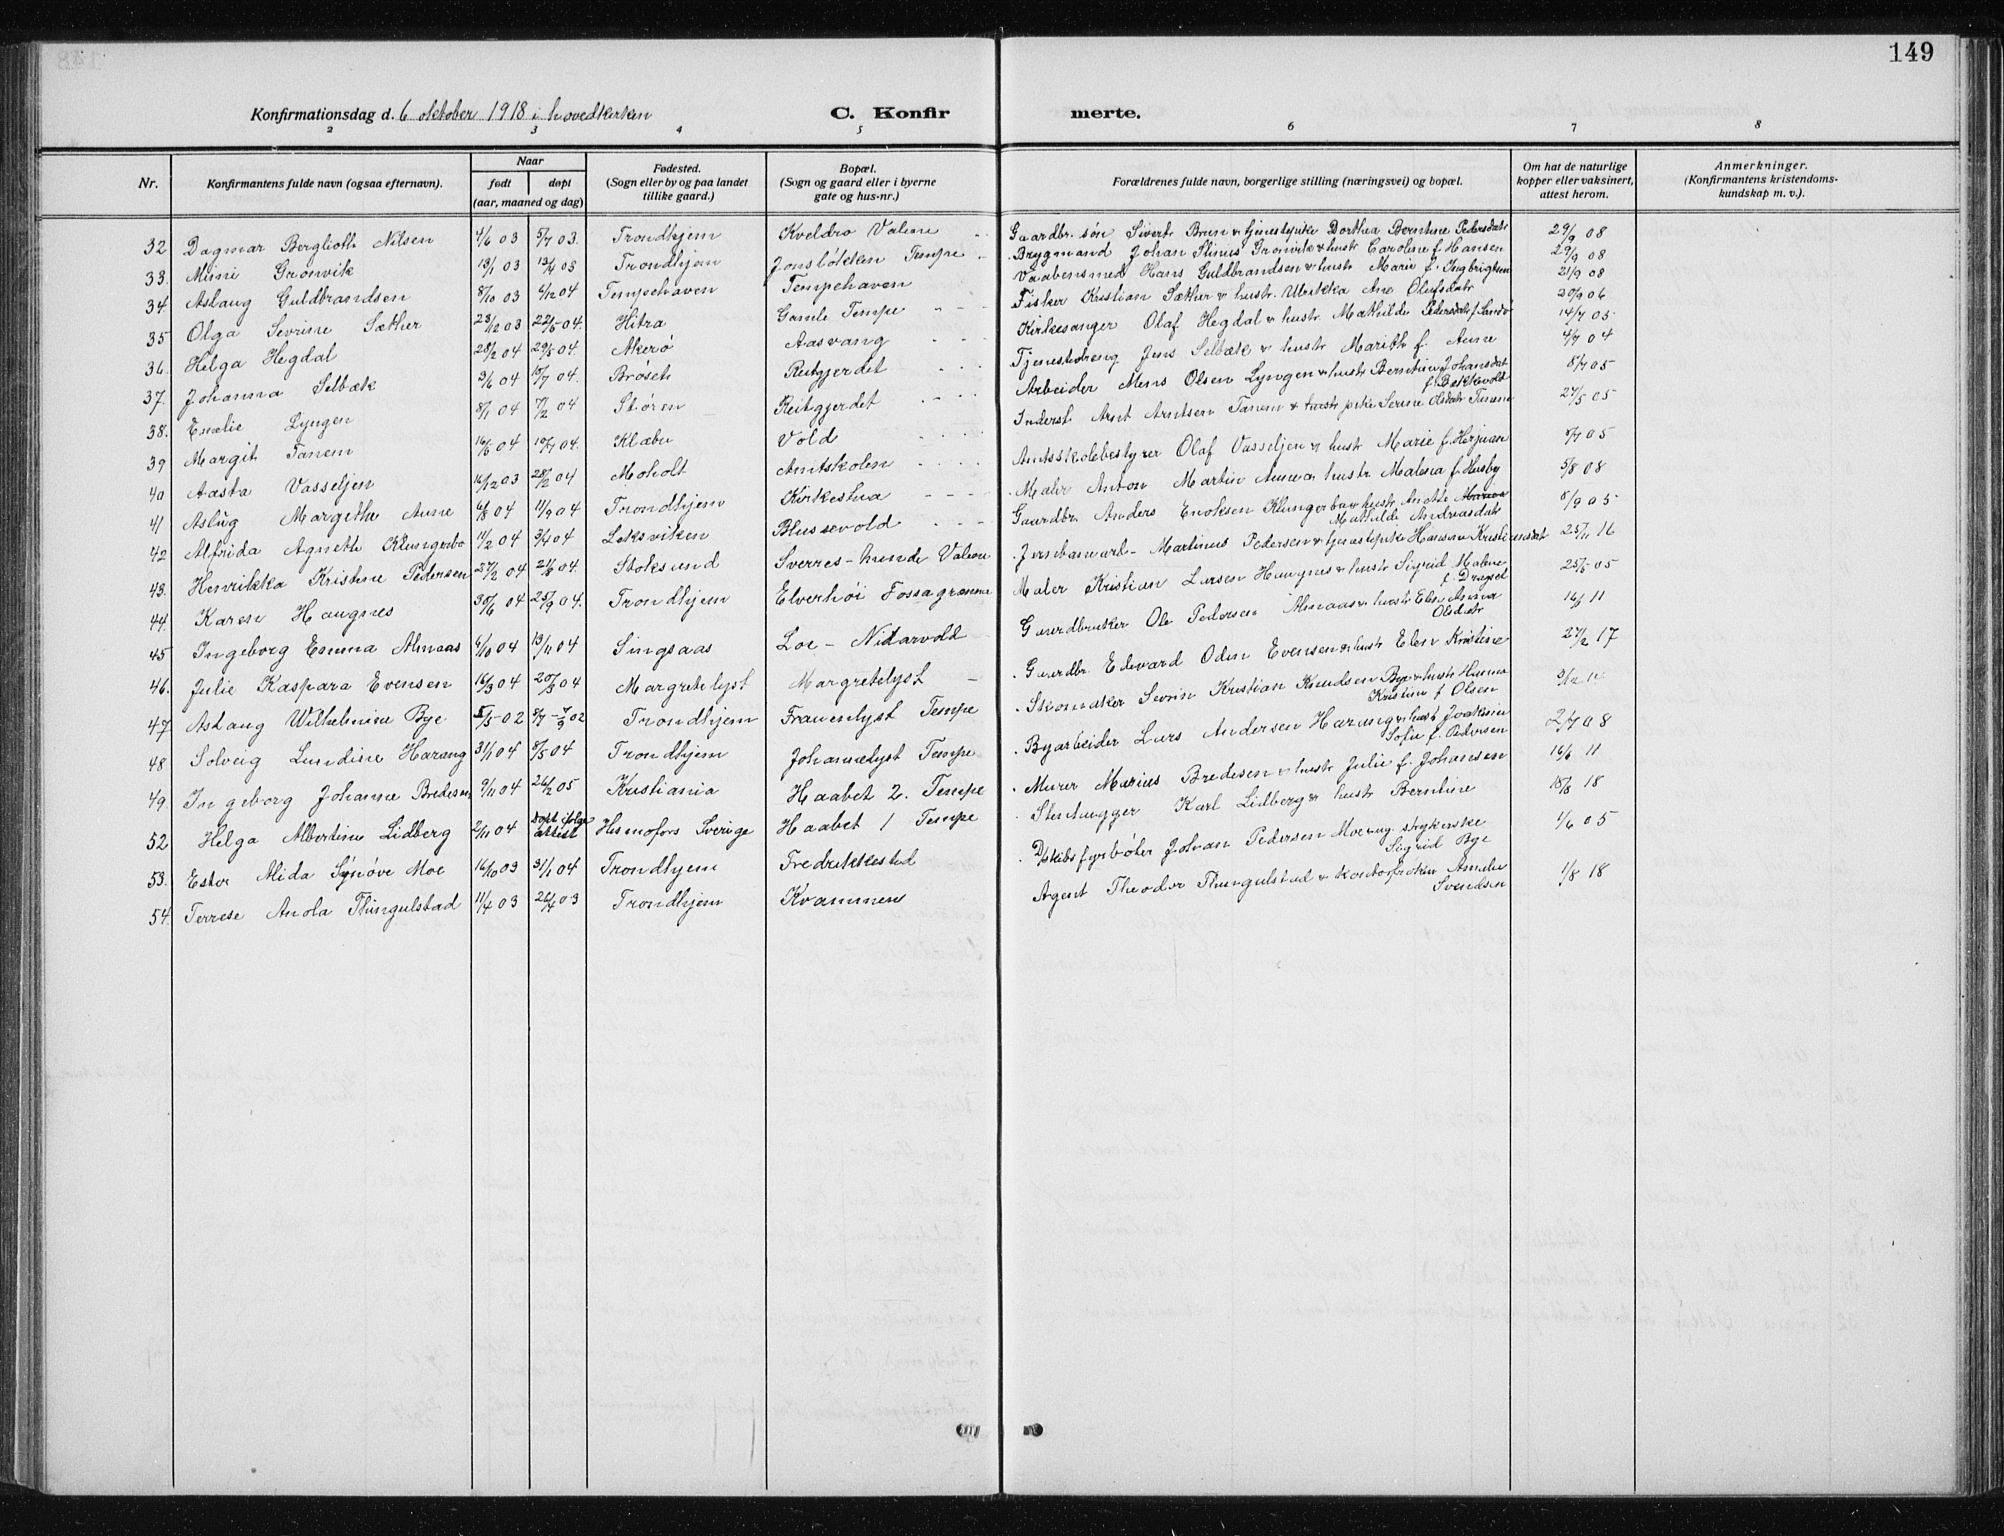 149
Konfirmationsdag d. 6 oktober 1918 i hovedkirken
C. Konfir merte.
2 3 4 5 6 7 8
Nr. Konfirmantens fulde navn (ogsaa efternavn). Naar født døpt (aar, maaned og dag) Fødested. (Sogn eller by og paa landet tillike gaard.) Bopæl. (Sogn og gaard eller i byerne gate og hus-nr.) Forældrenes fulde navn, borgerlige stilling (næringsvei) og bopæl. Om hat de naturlige kopper eller vaksinert, attest herom. Anmerkninger. (Konfirmantens kristendoms-kundskap m. v.).
32 Dagmar Berglioth Nilsen 4/6 03 5/7 03. Trondhjem Kveldro Valene Gaardbr. søn Sivert Brun & tjenestepike Dorthea Berntine Pedersdatr 29/9 08
33. Mimi Grønvik 19/1 03 13/4 03 Trondhjem Jonsløkken Tempe Brygmand Johan Stinus Grønvik & hustr Caroline f. Hansen 29/9 08
34 Aslaug Guldbrandsen 8/10 03 6/12 04 Tempehaven Tempehaven Vaabensmed Hans Guldbrandsen & hustr Marie f. Ingbrigtsen 21/9 08
35 Olga Sevrine Sæther 23/12 03 22/5 04. Hitra Gamle Tempe Fisker Kristian Sæther & hustr. Ulrikka Ane Olufsdatr 20/9 06
36. Helga Hegdal 28/2 04 29/5 04. Akerø Aasvang Kirkesanger Olaf Hegdal & hustr Mathilde Pedersdatr f. Sandø 14/7 05
37. Johanna Selbæk 3/6 04 10/7 04. Broseth Reitgjerdet Tjenestedreng Jens Selbæk & hustr Marith f. Aune 4/7 04
38. Emelie Lyngen 8/1 04 7/2 04 Støren Reitgjerdet Arbeider Mens Olsen Lyngen & hustr Berntine Johansdat f. Bekkvold 8/7 05
39 Margit Tanem 16/6 04 10/7 04. Klæbu Vold Inderst Arnt Arntsen Tanem & hustr pike Serine Olsdatr Tanem 27/5 05
40 Aasta Vasseljen 16/12 03 28/2 04 Moholt Amtskolen Amtsskolebestyrer Olaf Vasseljen & hustr Marie f. Herjuan 8/7 05
41 Aslüg Margithe Aune 6/8 04 11/9 04 Trondhjem Kirkestua Maler Anton Martin Aune & hustr Malena f. Husby 5/8 08
42 Alfrida Agneth Klungerbo 11/2 04 3/4 04 Leksviken Blussevold Gaardbr. Anders Enoksen Klungerbo & hustr Anette Mathilde Andreasdatr 8/9 05
43. Henrikka Kristine Pedersen 27/2 04 21/8 04. Stoksund Sverres-minde Valene Jernbanearb- Martinus Pedersen & tjenestepike Hansine Kristiansdat 25/11 16
44. Karen Haugnes 30/6 04 25/9 04. Trondhjem Elverhøi Fossegrenna Maler Kristian Larsen Haugnes & hustr Sigrid Malene f. Dragset 25/5 05
45 Ingeborg Emma Almaas 6/10 04 13/11 04 Singsaas Loe - Nidarvold Gaardbruker Ole Pedersen Almaas & hustr Elen Anna Olsdatr 16/8 11
46. Julie Kaspara Evensen 16/3 04 20/5 04 Margretelyst Margretelyst Gaardbr. Edevard Odin Evensen & hustr Elen Kristine 27/2 17
47 Aslaug Wilhelmine Bye 5/5 02 8/7 - 7/9 02 Trondhjem Frauenlyst Tempe Skomaker Sevrin Kristian Knudsen Bye & hustr Hanna Kristine f. Olsen
48 Solveig Lundine Harang 31/1 04 8/5 04 Trondhjem Johannelyst Tempe Byarbeider Lars Andersen Harang & hust Joaksine Sofie f. Pedersen 2/7 08
49. Ingeborg Johanne Bredesen 9/11 04 26/2 05 Kristiania Haabet 2. Tempe Murer Marius Bredesen & hustr Julie f. Johansen 16/6 11
52 Helga Albertine Lidberg 2/11 04 døpt ifølge attest Humofors Sverige Haabet 1 Tempe Stenhugger Karl Lidberg & hustr Berntine 18/8 18
53. Ester Alida Synøve Moe 16/10 03 31/1 04 Trondhjem Fredrikkestad D/skibsfyrbøter Johan Pedersen Moe ug. strykerske Sigrid Bye 1/6 05
54. Terrese Anola Thingulstad 11/4 03 26/4 03 Trondhjem Kvammen Agent Theodor Thingulstad & kontorfrøken Amalie Svendsen 1/8 18